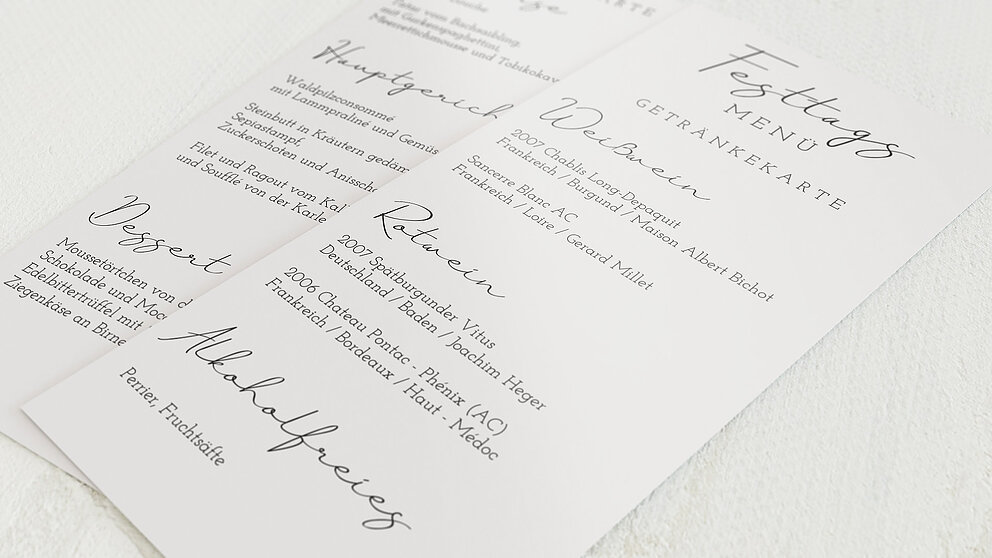 Festtags
MENÜ
GETRÄNKEKARTE
Weißwein
2007 Chablis Long-Depaquit
Frankreich / Burgund / Maison Albert Bichot
Sancerre Blanc AC
Frankreich / Loire / Gerard Millet
Rotwein
2007 Spätburgunder Vitus
Deutschland / Baden / Joachim Heger
2006 Chateau Pontac - Phénix (AC)
Frankreich / Bordeaux / Haut - Médoc
Alkoholfreies
Perrier, Fruchtsäfte
KARTE
vom Bachsaibling,
mit Gurkenspaghettini,
Meerrettichmousse und Tobikokav
Hauptgerich
Waldpilzconsommé
mit Lammpraliné und Gemüs
Steinbutt in Kräutern gedäm
Sepiastampf,
Zuckerschoten und Anissch
Filet und Ragout vom Kal
und Soufflé von der Karle
Dessert
Moussetörtchen von d
Schokolade und Moc
Edelbittertrüffel mit
Ziegenkäse an Birne